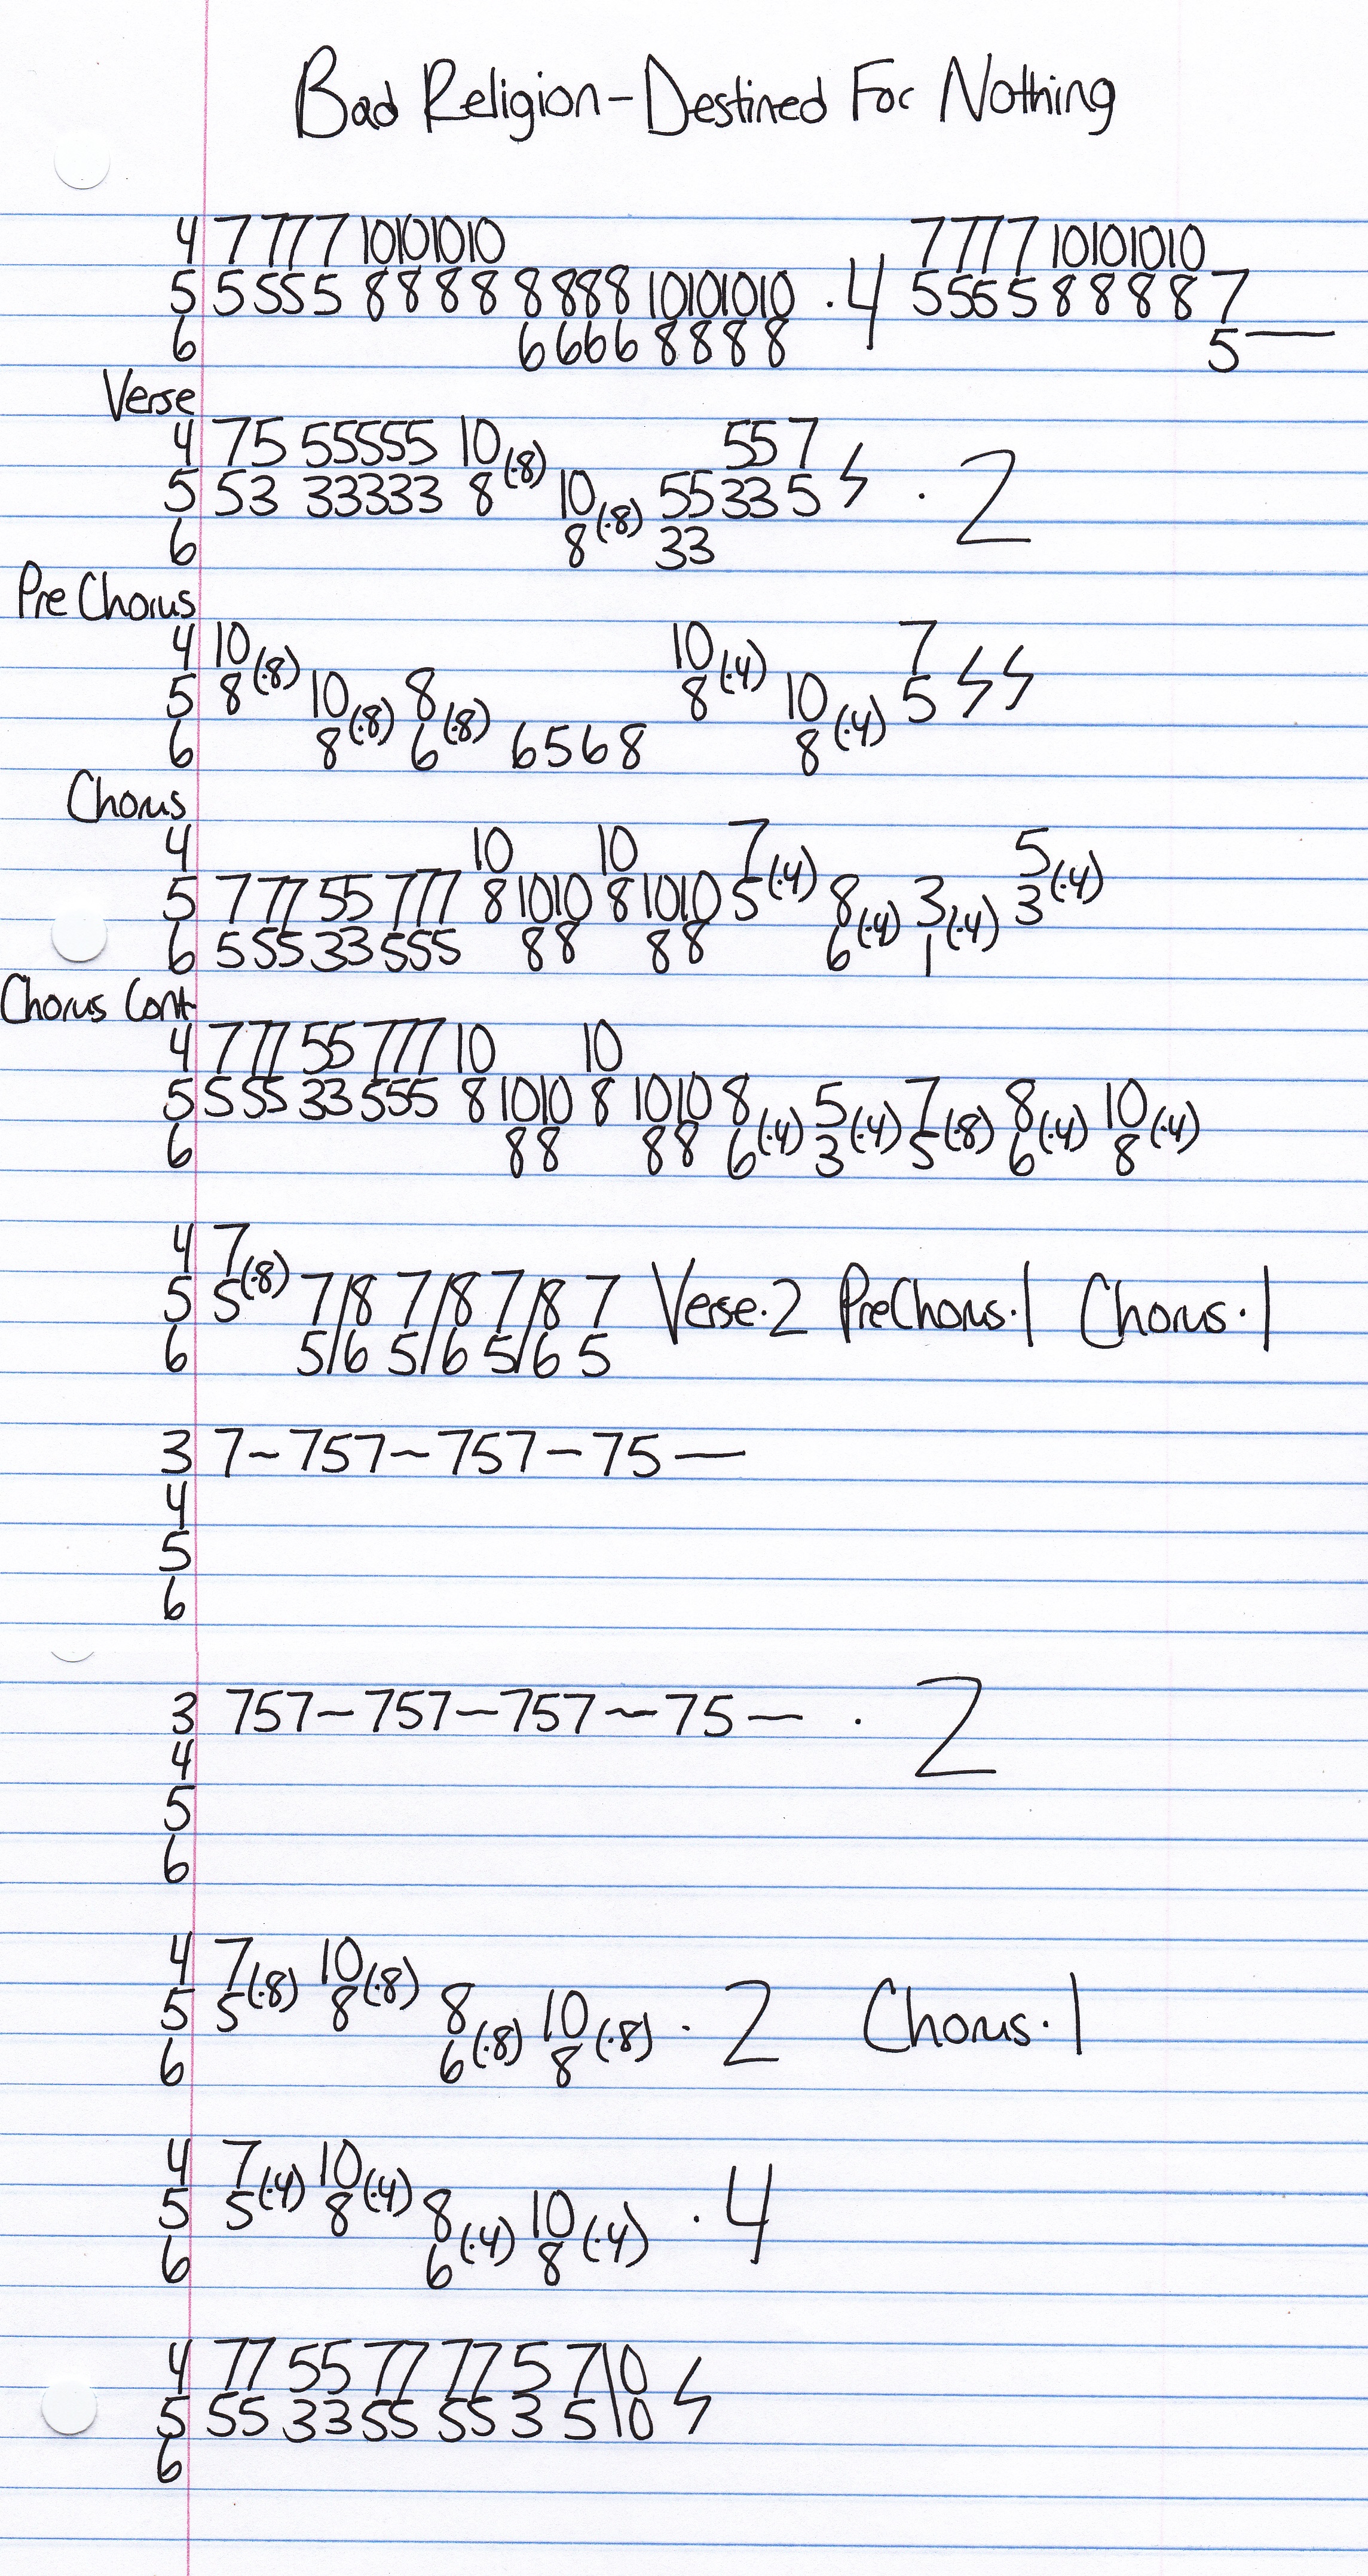 Bad Religion-Destined For Nothing
4 7 777 10101010 7777 10101010
5 5555 8888 8888 10101010 ·4 5555 8888 7
6 6666 8888 5—
Verse
4 75 55555 10 557
5 53 33333 8(·8) 10 55335 ϟ ·2
6 8(·8) 33
Pre Chorus
4 10 10 7
5 8(·8) 10 8 8(·4) 10 5 ϟϟ
6 8(·8) 6(·8) 6568 8(·4)
Chorus
4 10 10 7 5
5 777 55 777 8 1010 8 1010 5(·4) 8 3 3(·4)
6 555 33 555 88 88 6(·4) 1(·4)
Chorus Cont
4 777 55 777 10 10
5 555 33 555 8 1010 8 1010 8 5 7 8 10
6 88 88 6(·4) 3(·4) 5(·8) 6(·4) 8(·4)
4 7
5 5(·8) 7/8 7/8 7/8 7 Verse·2 PreChorus·1 Chorus·1
6 5/6 5/6 5/6 5
3 7~757~757-75—
4
5
6
3 757-757-757~75— ·2
4
5
6
4 7 10
5 5(·8) 8(·8) 8 10 ·2 Chorus·1
6 6(·8) 8(·8)
4 7 10
5 5(·4) 8(·4) 8 10 ·4
6 6(·4) 8(·4)
4 77 55 77 77 5 7\10
5 55 33 55 55 3 5\10 ϟ
6